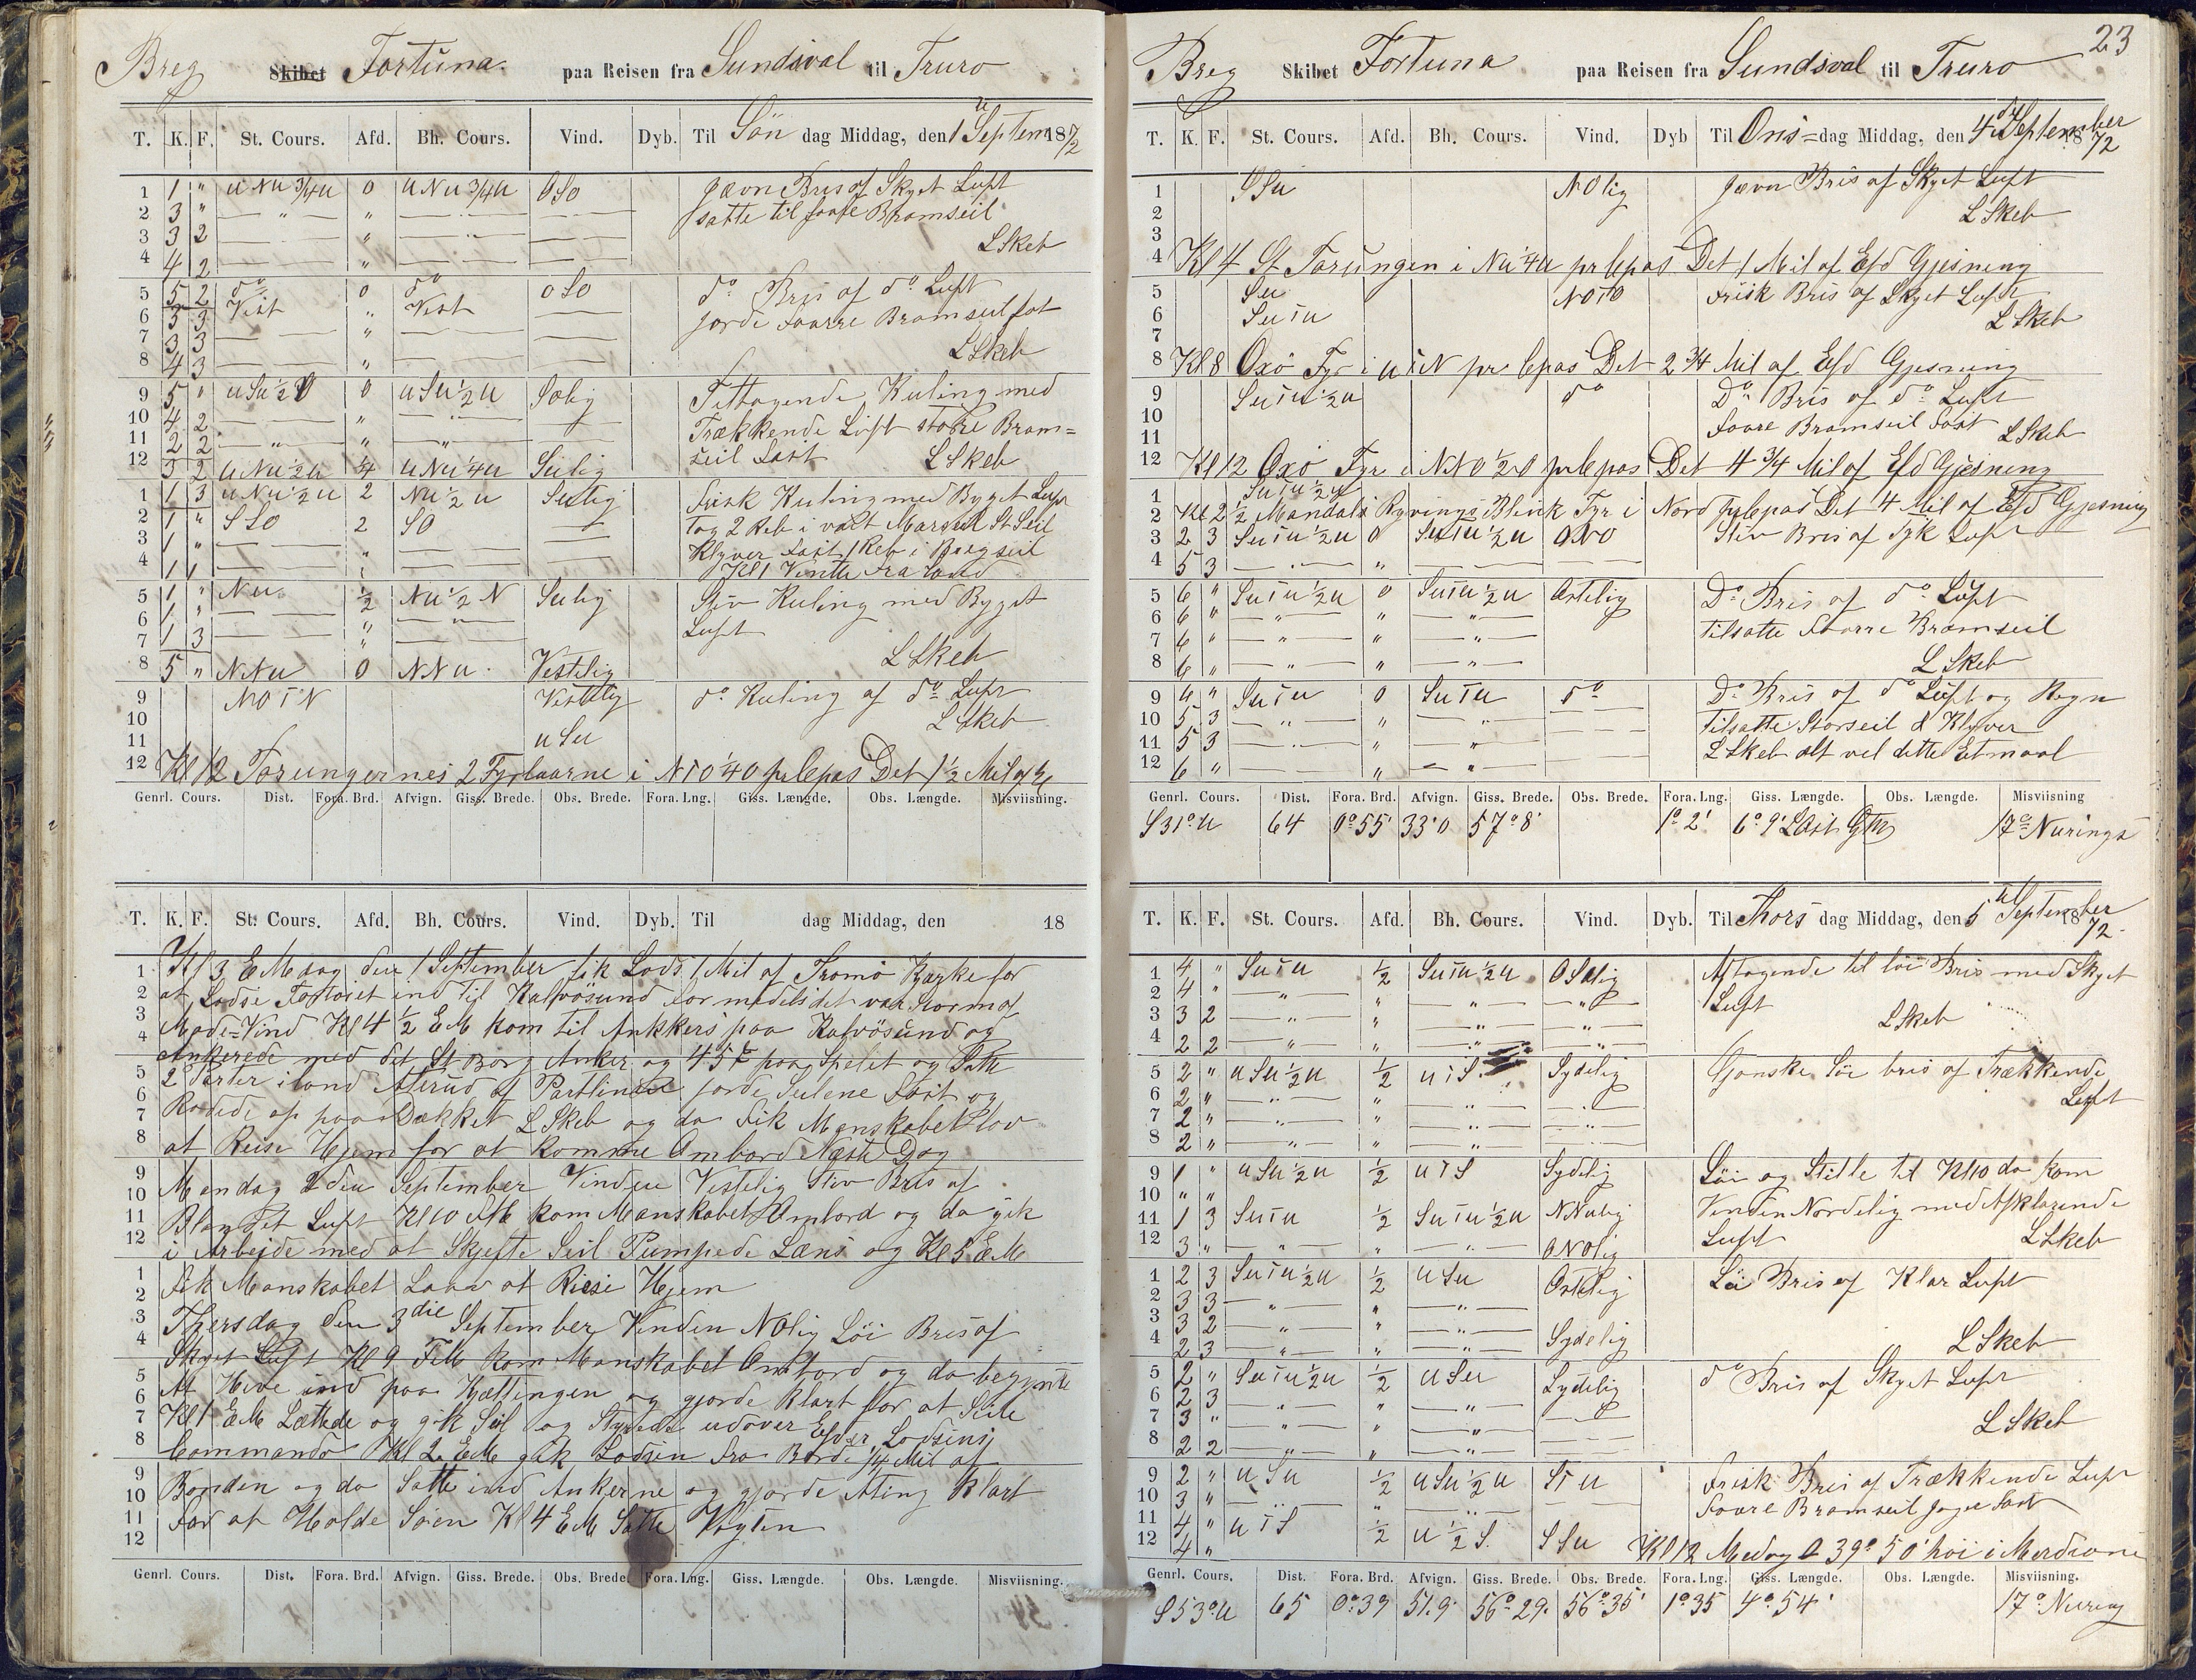 Breg Skibet Fortuna. paa Reisen fra Sundsval til Truro
T. K. F. St. Cours. Afd. Bh. Cours. Vind. Dyb. Til Sön dag Middag, den 1 Septem 1872
1 1 " u Nu 3/4 u 0 u Nu 3/4 u OSO jævn Bris af Skyet Luft
2 3 " — " — " — " — — satte til foore Bramseil
3 3 2 — " — " — — L Skeb
4 4 2 — " — —
5 5 2 do 0 do OSO do Bris af do Luft
6 3 3 Vest " Vest — jorde foorre Bramseil fat
7 3 3 — " — —
8 4 3 — " — — L Skeb
9 5 " u Su 1/2 0 u Su 1/2 u Solig Tiltagende Kuling med
10 4 2 — " — — Trækkende Luft store Bram=
11 2 2 — " — " — " — seil Fast L Skeb
12 3 2 u Nu 1/2 u 1/4 u Nu 1/4 u Sulig
1 1 3 u Nu 1/2 u 2 Nu 1/2 u Sulig frisk Kuling med Byget Luft
2 1 " SSO 2 SO — tog 2 Reb i vært Marseil St Seil
3 1 " — " — — Klyver Fast 1 Reb i Brægseil
4 1 1 — " — — Kl 1 Vente Fra Land
5 1 " Nu 1/2 Nu 1/2 N Sulig Stiv Kuling med Byget
6 1 " — " — " — Luft
7 1 3 — " —
8 5 " NNu 0 NNu. Vestelig L Skeb
9 NOTN Vestelig do Kuling af do Luft
10 L Skeb
11 u Su
12 Kl 12 Torungernes 2 Fyrtaarne i NTO 1/4 O pr Cpas Det 1 1/2 Mil af
Genrl. Cours. Dist. Fora. Brd. Afvign. Giss. Brede. Obs. Brede. Fora. Lng. Giss. Længde. Obs. Længde. Misviisning.
T. K. F. St. Cours. Afd. Bh. Cours. Vind. Dyb. Til dag Middag, den 18
1 Kl 3 E Mdag den 1 September fik Lods 1 Mil af Tromö Kyrke for
2 at Lodse Fartöiet ind til Kalvösund for medelst det var Storm af
3 Mode=Vind Kl 4 1/2 EM kom til Ankkers paa Kalvösund og
4 Ankerede med det St Borg Anker og 45 paa Spelet og Satte
5 2 Perter iland Akrud af Partlinee jorde Seilene Fast og
6 Rodede op paa Dækket L Skeb og da Fik Manskabet Lov
7 8 at Reise Hjem for at komme Ombord Næste Dag
9 Mandag 2 den September Vinden Vestelig Stiv Bris af
10 11 Blanket Luft Kl 10 FM kom Manskabet Ombord og da gik
12 i Arbejde med at Skjefte Seil Pumpede Læns og Kl 5 EM
1 2 Fik Manskabet Laav at Riese Hjem
3 Thersdag den 3die September Vinden NOlig Löi Bris af
4 Skyet Luft Kl 9 FM kom Manskabet Ombord og da begynte
5 At Hive ind paa Kjættingen og gjorde Klart for at Seile
6 7 Kl 1 EM Lættede og gik Seil og Styrede udover Efter Lodsens
8 Commando Kl 2 EM gik Lodsen fra Borde 1/4 Mil af
9 10 Bonden og da Satte ind Ankerne og gjorde Alting Klart
11 12 For at Holde Söen Kl 4 EM Satte Vagten
Genrl. Cours. Dist. Fora. Brd. Afvign. Giss. Brede. Obs. Brede. Fora. Lng. Giss. Længde. Obs. Længde. Misviisning.
23
Breg Skibet Fortuna paa Reisen fra Sundsval til Truro
T. K. F. St. Cours. Afd. Bh. Cours. Vind. Dyb Til Ons= dag Middag, den 4de September 1872
1 SSu NOlig jævn Bris af Skyet Luft
2 L Skeb
3
4 Kl 4 St Torungen i Nu 1/4 u pr Cpas Det 1 Mil af Efd Gjesning
5 Su NOTO Frisk Bris af Skyet Luft
6 SuTu L Skeb
7
8 Kl 8 Oxö Fyr i uTN pr Cpas Det 2 3/4 Mil af Efd Gjesning
9 SuTu 1/2 u do Do Bris af do Luft
10 foore Bramseil Fast
11 L Skeb
12 Kl 12 Oxö Fyr i NNO 1/2 O pr Cpas Det 4 3/4 Mil af Efd Gjesning
1 SuTu 1/2 u
2 Kl 2 1/2 Mandals Ryvings Blink Fyr i Nord pr Cpas Det 4 Mil af Efd Gjesning
3 2 3 SuTu 1/2 u 0 SuTu 1/2 u ONO Stiv Bris af Tyk Luft
4 5 3 — " — " — —
5 6 " SuTu 1/2 u 0 SuTu 1/2 u Ostelig Do Bris af do Luft
6 6 " — " — " — " — Tilsatte Foorre Bramseil
7 6 " — " — " — " —
8 6 " — " — " — " — L Skeb
9 4 " SuTu 0 SuTu do Do Bris af do Luft og Regn
10 5 3 — " — " — " — Tilsatte Storseil & Klyver
11 5 3 — " — " — " — L Skeb alt vel dette Etmaal
12 6 " — — " — " —
Genrl. Cours. Dist. Fora. Brd. Afvign. Giss. Brede. Obs. Brede. Fora. Lng. Giss. Længde. Obs. Længde. Misviisning
S31°u 64 0°55' 33'0 57°8' 1°2' 6°9' L Ost Gm 17° Nurings
T. K. F. St. Cours. Afd. Bh. Cours. Vind. Dyb. Til Thors dag Middag, den 5 September 1872.
1 4 " SuTu 1/2 SuTu 1/2 u OSOlig Aftagende til löi Bris med Skyet
2 4 " — " — " — " — " — Luft
3 3 2 — " — " — " — " — L Skeb
4 2 2 — " — " — " — " —
5 2 " u Su 1/2 u 1/2 uTS Sydelig Ganske Löi bris af Trækkende
6 2 " — " — " — " — — Luft
7 2 " — " — " — " — —
8 2 " — " — " — " — —
9 1 " u Su 1/2 u 1/2 uTS Sydelig Löi og Stille til Kl 10 da kom
10 " " Vinden Nordelig med Afklarende
11 1 3 SuTu 1/2 SuTu 1/2 u NNulig Luft
12 3 " — " — " — " — ONOlig L Skeb
1 2 3 SuTu 1/2 u 1/2 u Su Ostelig Löi Bris af Klar Luft
2 3 3 — " — " — " —
3 3 2 — " — " — " —
4 2 3 — " — " — " — Sydelig L Skeb
5 2 " SuTu 1/2 u 1/2 u Su Sydelig do Bris af Skyet Luft
6 2 3 — " — " — " — —
7 3 " — " — " — " — — L Skeb
8 2 2 — " — " — " — —
9 2 " u Su 1/2 u Su 1/2 u STu Frisk Bris af Trækkende Luft
10 3 " — " — " — " — — Foore Bramseil Jager Fast
11 4 " uTS 1/2 u 1/2 S. SSu
12 4 " Kl 12 Medag 39° 50' höi i Merdiane
Genrl. Cours. Dist. Fora. Brd. Afvign. Giss. Brede. Obs. Brede. Fora. Lng. Giss. Længde. Obs. Længde. Misviisning.
S53°u 65 0°39 51.9' 56°29. 56°35' 1°35 4°54' 17° Nuring